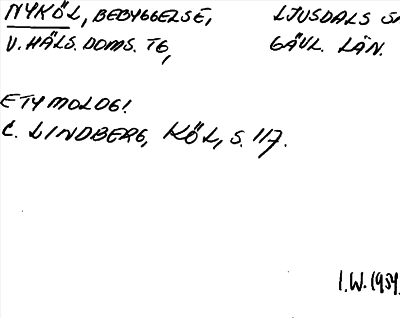 NYKÖL, BEBYGGELSE, LJUSDALS S
V. HÄLS. DOMS. TG, GÄVL. LÄN.
ETYMOLOGI
C. LINDBERG, KÖL, S. 117.
I.W. 1959.